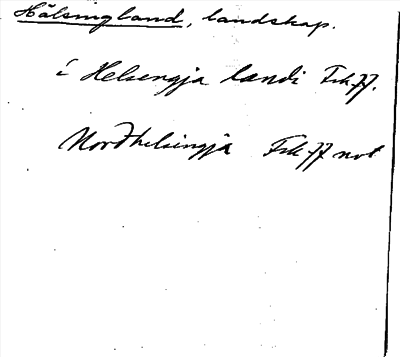 Hälsingland, landskap.
í Helsengja landi Fsk 77.
Norðhelsingja Fsk 77 not